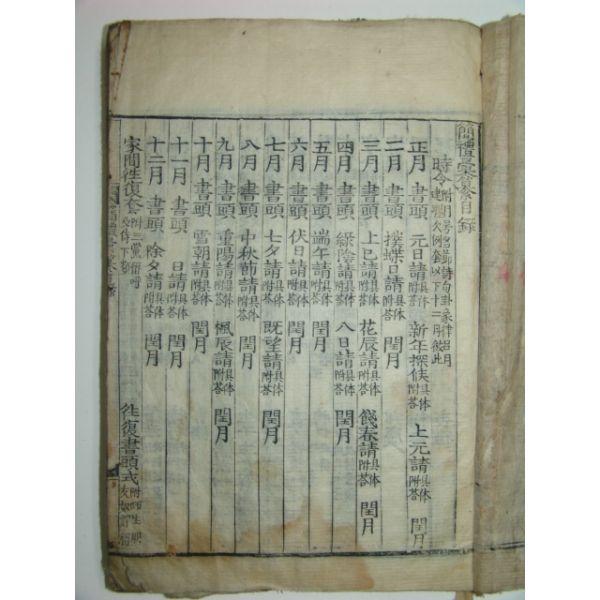 簡禮彙纂目錄
時令
正月 書頭 元日請具体附答 新年探候具体附答 上元請具体附答 閏月
二月 書頭 撲蝶日請具体附答 閏月
三月 書頭 上巳請具体附答 花辰請具体附答 餞春請具体附答 閏月
四月 書頭 綠陰請具体附答 八日請具体附答 閏月
五月 書頭 端午請具体附答 閏月
六月 書頭 伏日請具体附答 閏月
七月 書頭 七夕請具体附答 既望請具体附答 閏月
八月 書頭 中秋節請具体附答 閏月
九月 書頭 重陽請具体附答 楓辰請具体附答 閏月
十月 書頭 雪朝請具体附答 閏月
十一月 書頭 日請具体附答 閏月
十二月 書頭 除夕請具体附答 閏月
家間徃復套 徃復書頭式